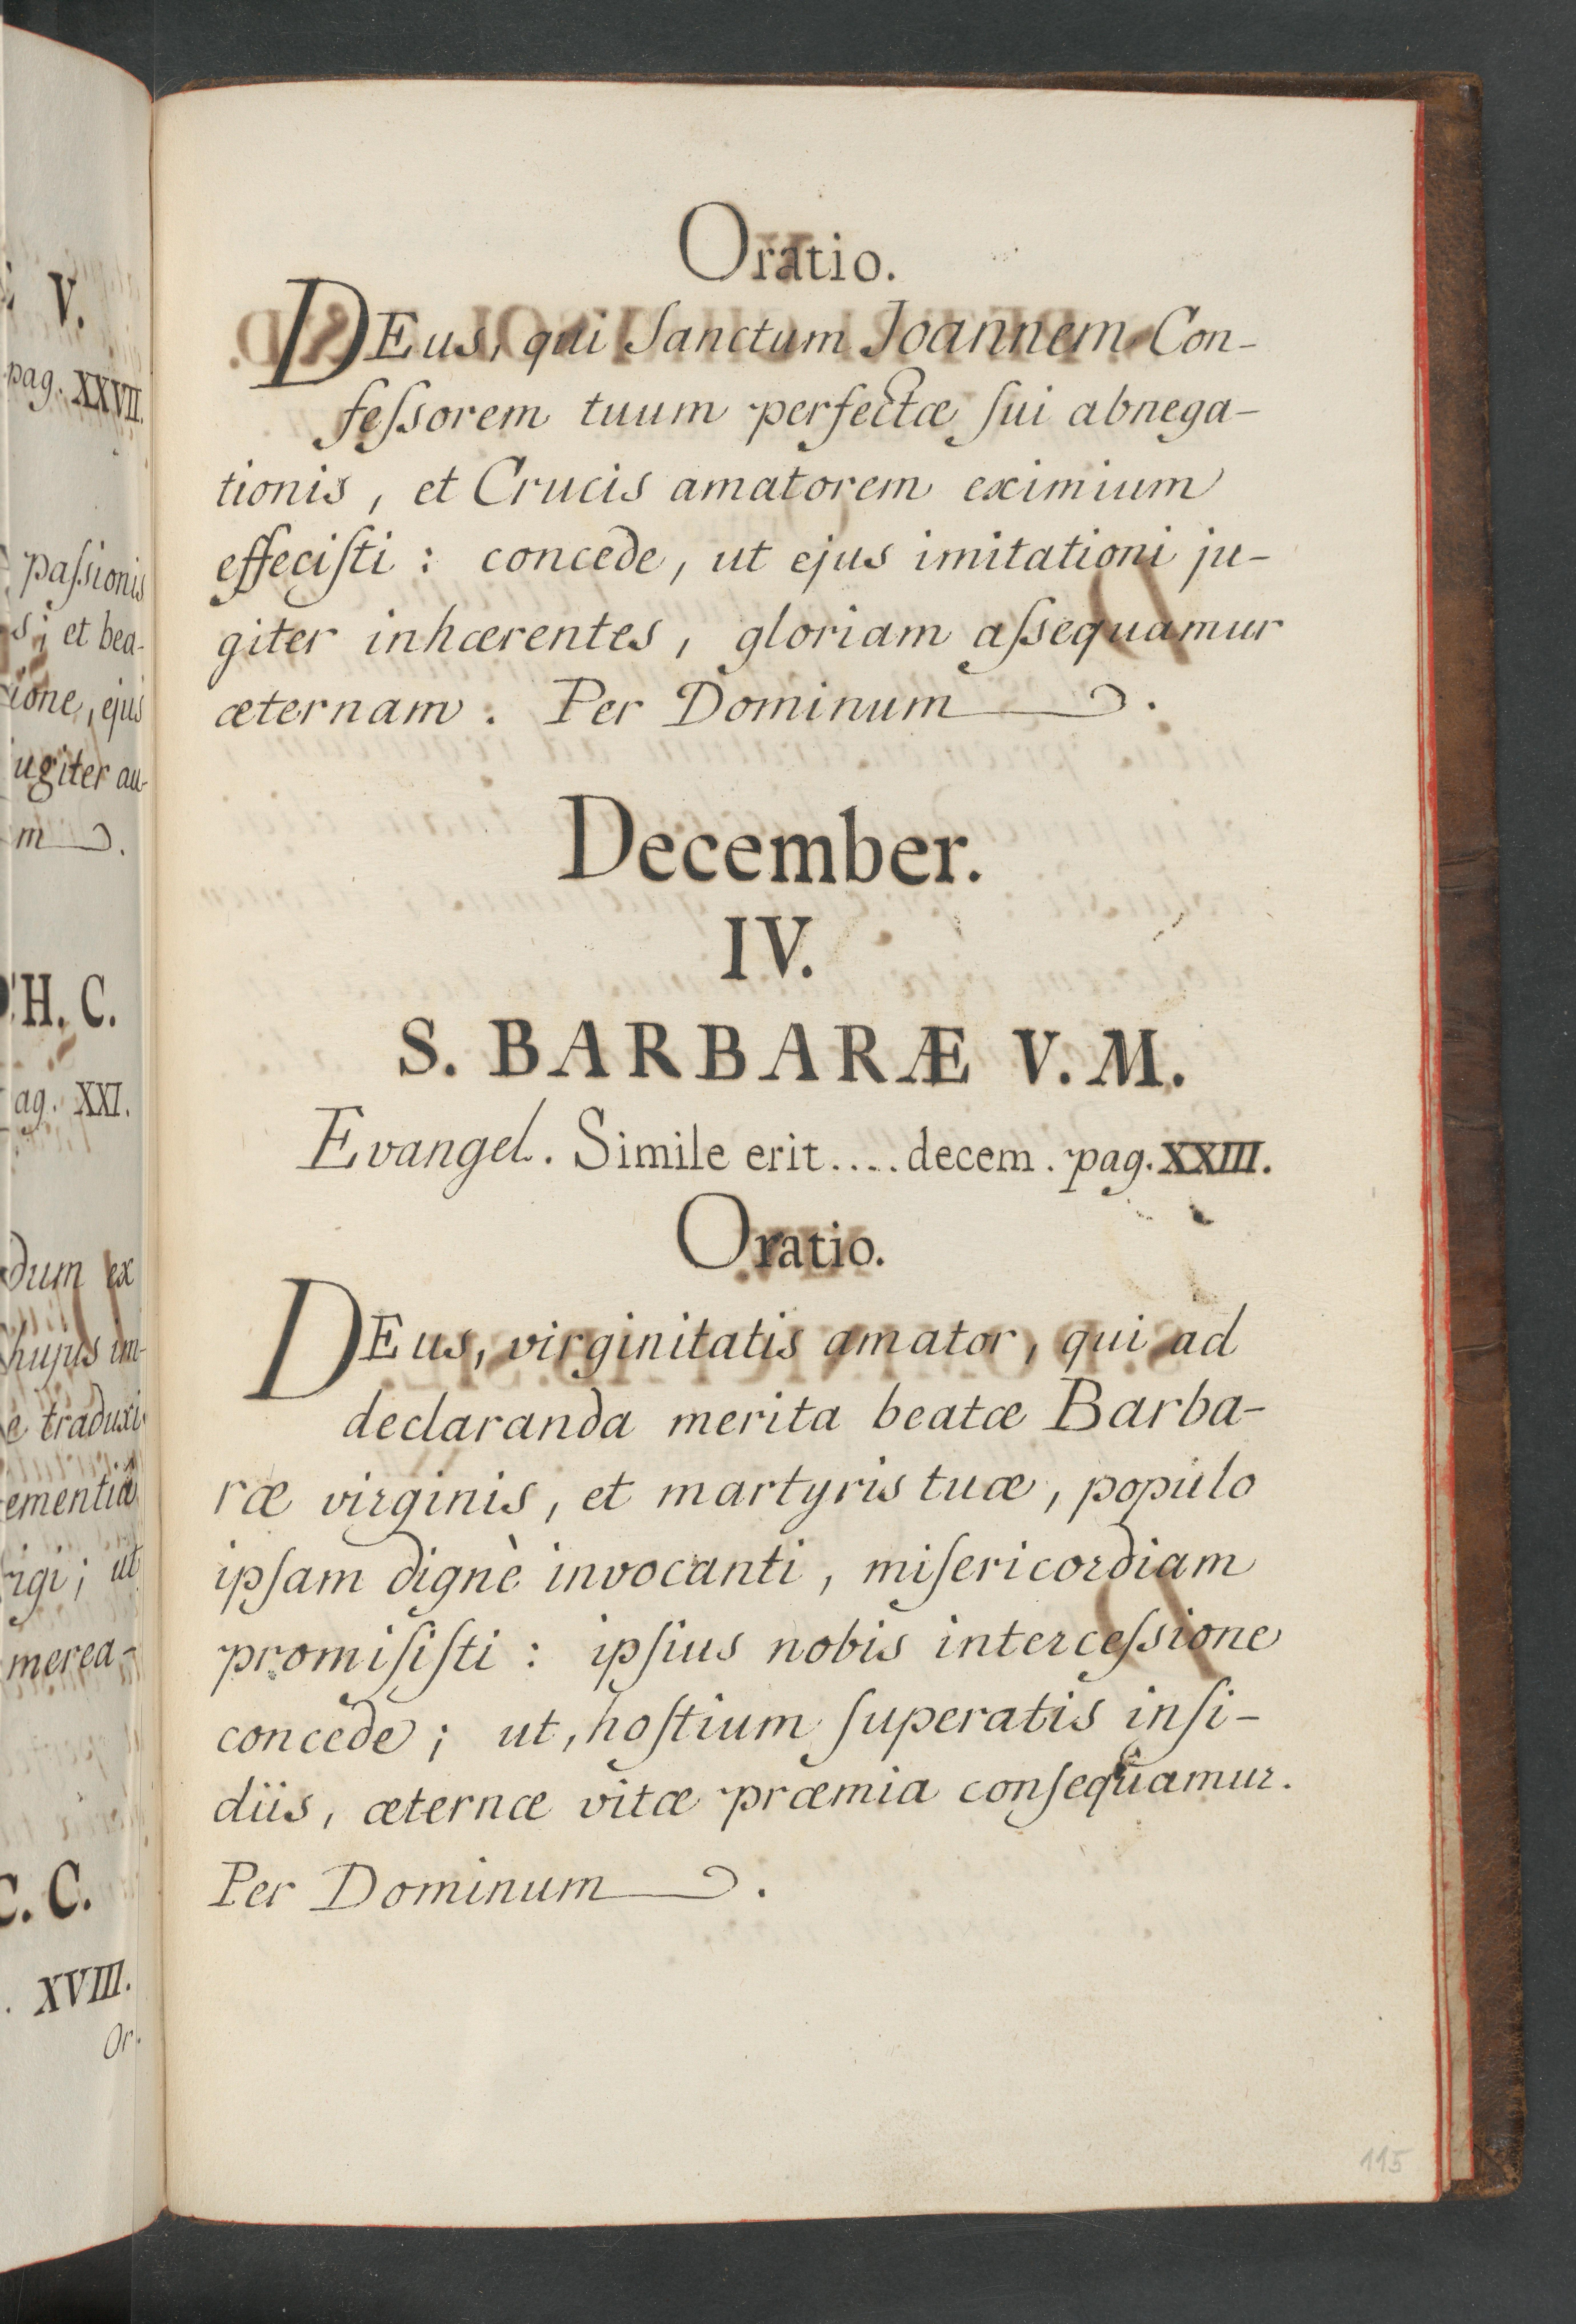 V.
pag. XXVII.
paſsionis
s; et bea-
ione, ejus
ugiter au-
m
H. C.
ag. XXI.
dum ex
hujus im-
e traduxi
ementiâ
igi; ut
merea-
C. C.
. XVIII.
Or.
Oratio.
DEus, qui Sanctum Joannem Con-
feſsorem tuum perfectæ ſui abnega-
tionis, et Crucis amatorem eximium
effeciſti: concede, ut ejus imitationi ju-
giter inhærentes, gloriam aſsequamur
æternam. Per Dominum.
December.
IV.
S. BARBARÆ V. M.
Evangel. Simile erit.... decem. pag. XXIII.
Oratio.
DEus, virginitatis amator, qui ad
declaranda merita beatæ Barba-
ræ virginis, et martyris tuæ, populo
ipſam dignè invocanti, miſericordiam
promiſiſti: ipſius nobis interceſsione
concede; ut, hoſtium ſuperatis inſi-
diis, æternæ vitæ præmia conſequamur.
Per Dominum.
115